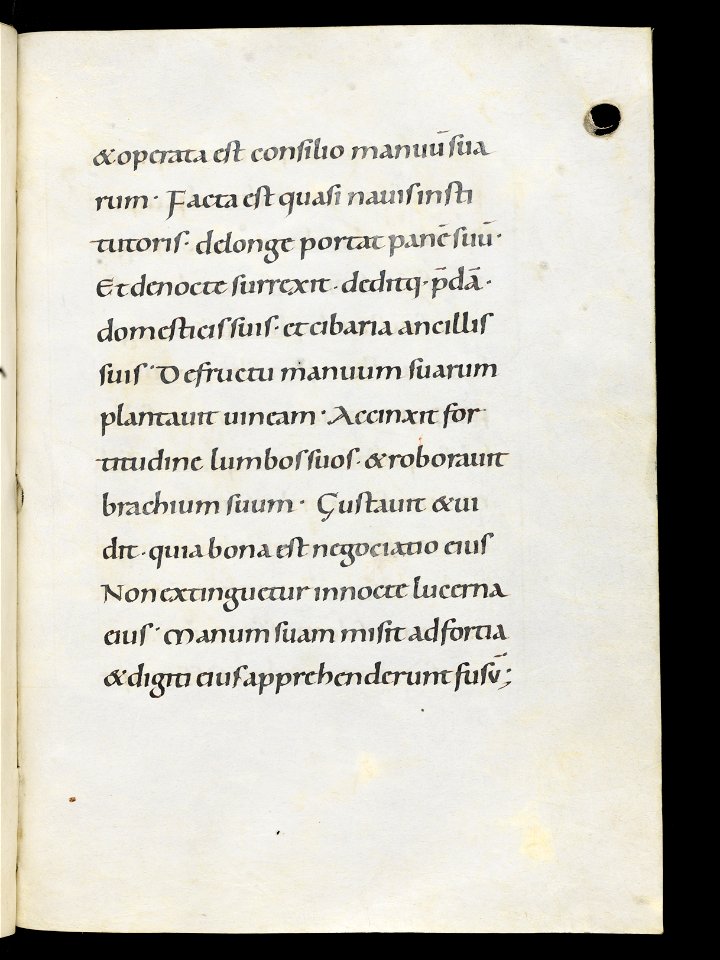 &operata est consilio manuū sua
rum· Facta est quasi nauis insti
tutoris· delonge portat panē suū·
Et denocte surrexit· deditq· p̄dā·
domesticis suis· et cibaria ancillis
suis· De fructu manuum suarum
plantauit uineam· Accinxit for
titudine lumbos suos· & roborauit
brachium suum· Gustauit & ui
dit· quia bona est negociatio eius
Non extinguetur innocte lucerna
eius· Manum suam misit ad fortia
& digiti eius apprehenderunt fusū;